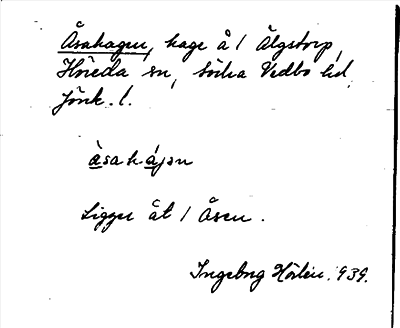 Åsahagen, hage å 1 Älgstorp,
Höreda sn, Södra Vedbo hd,
Jönk. l.
åsahájən
Ligger åt 1 Åsen.
Ingeborg Hörlin. 939.